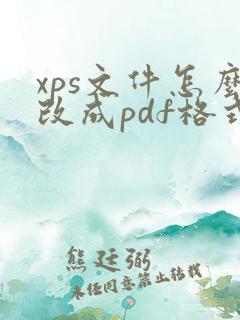 xps文件怎麼
改成pdf格式
熊廷弼
未经同意禁止转载